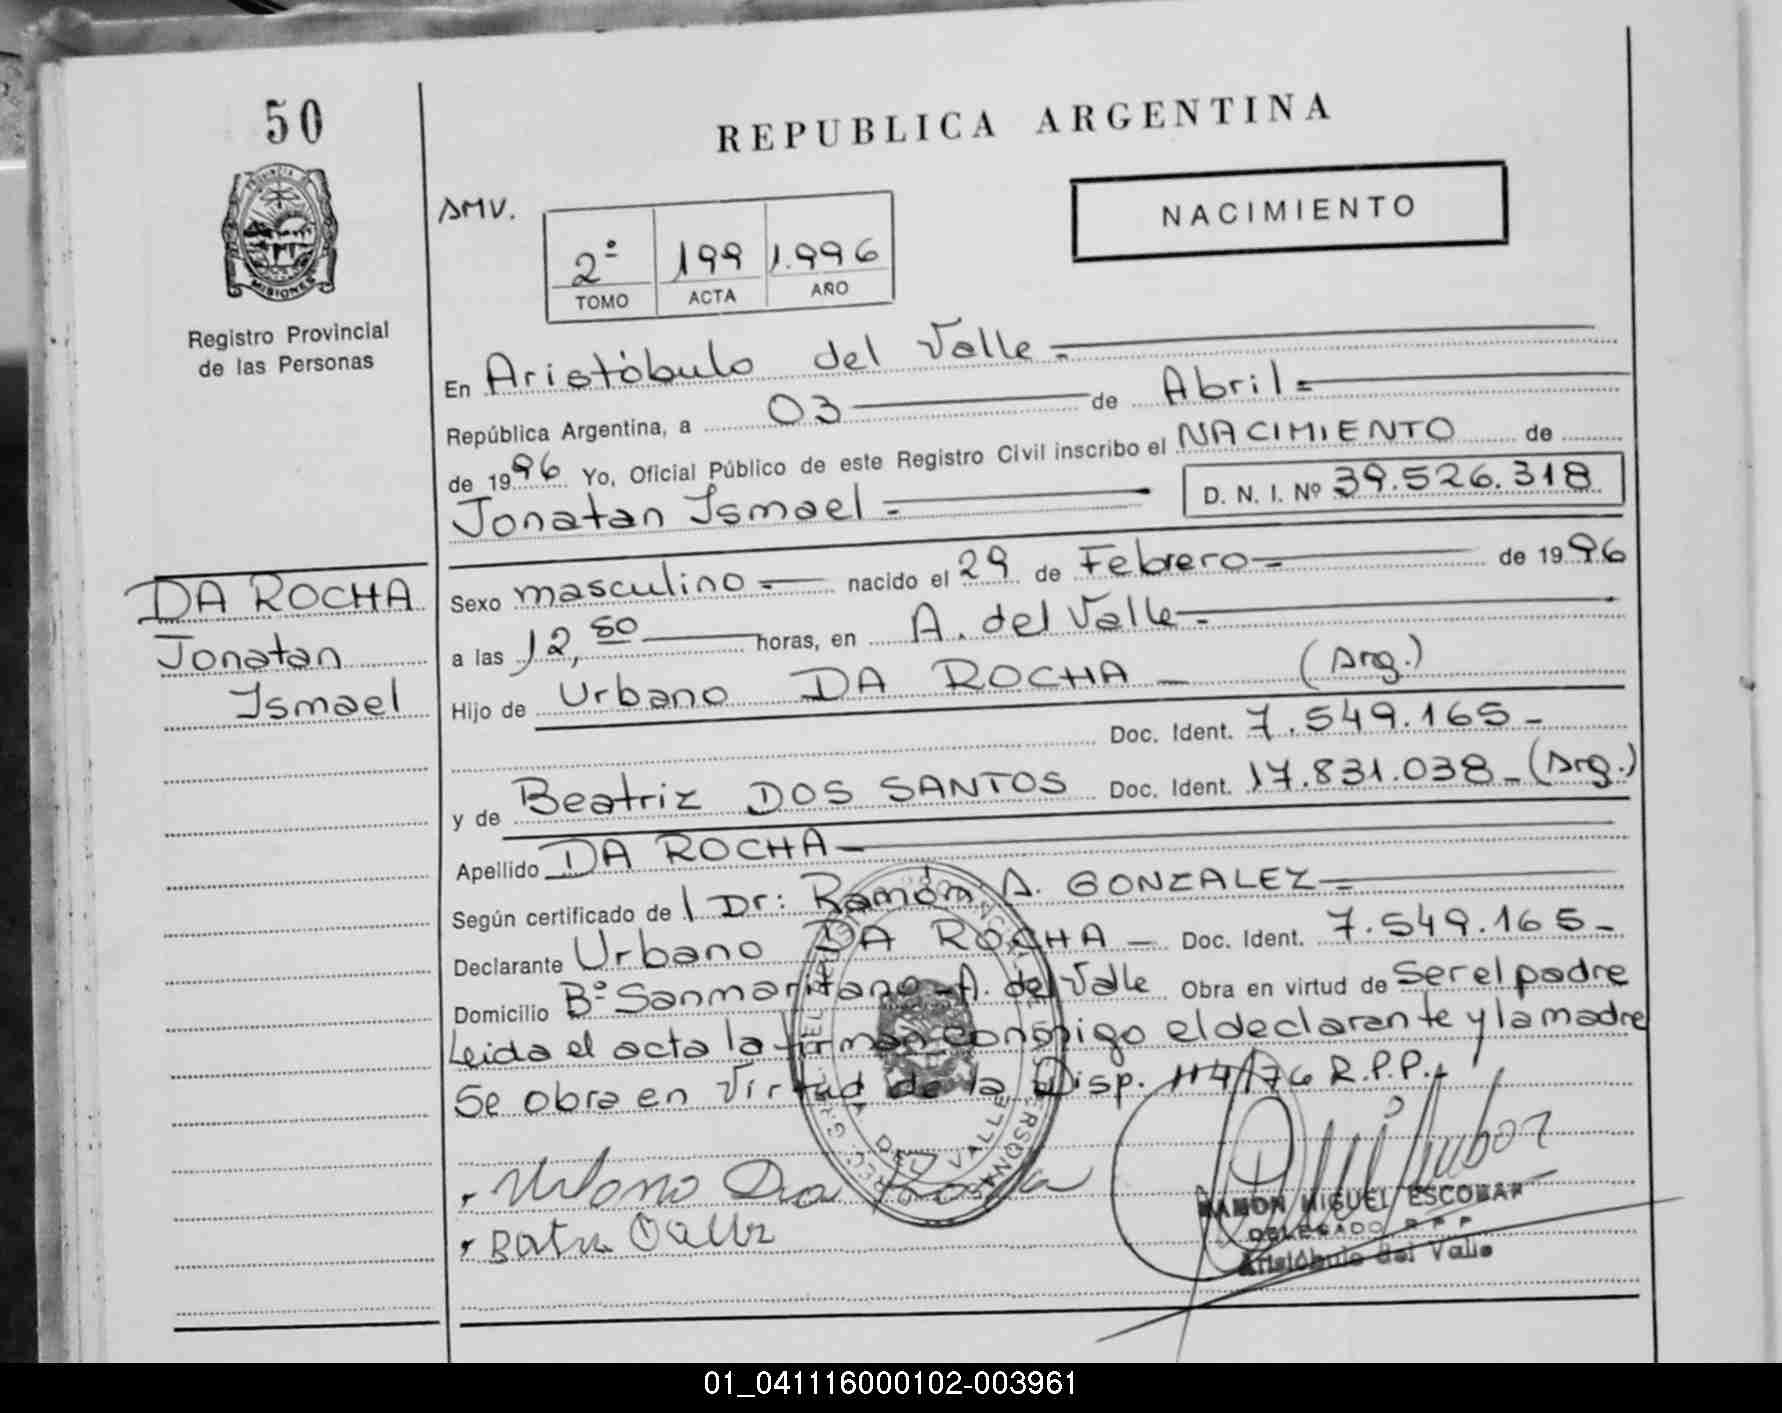 50
PROVINCIA D
MISIONES
Registro Provincial
de las Personas
REPUBLICA ARGENTINA
NACIMIENTO
AMV.
2º 199 1.996
TOMO ACTA AÑO
En Aristóbulo del Valle =
República Argentina, a 03 de Abril =
de 1996 Yo, Oficial Público de este Registro Civil inscribo el NACIMIENTO de
Jonatan Ismael = D. N. I. Nº 39.526.318
DA ROCHA
Jonatan
Ismael
Sexo masculino = nacido el 29 de Febrero = de 1996
a las 12,50 horas, en A. del Valle =
Hijo de Urbano DA ROCHA - (Arg.)
Doc. Ident. 7.549.165 -
y de Beatriz DOS SANTOS Doc. Ident. 17.831.038 - (Arg.)
Apellido DA ROCHA -
Según certificado de l Dr: Ramón A. GONZALEZ =
Declarante Urbano DA ROCHA - Doc. Ident. 7.549.165 -
Domicilio Bº Sanmaritano - A. del Valle Obra en virtud de Ser el padre
Leida el acta la firman conmigo el declarante y la madre
Se obra en Virtud de la Disp. 114/76 R.P.P.
DEL VALLE
RAMON MIGUEL ESCOBAR
DELEGADO R P P
Aristóbulo del Valle
01_041116000102-003961